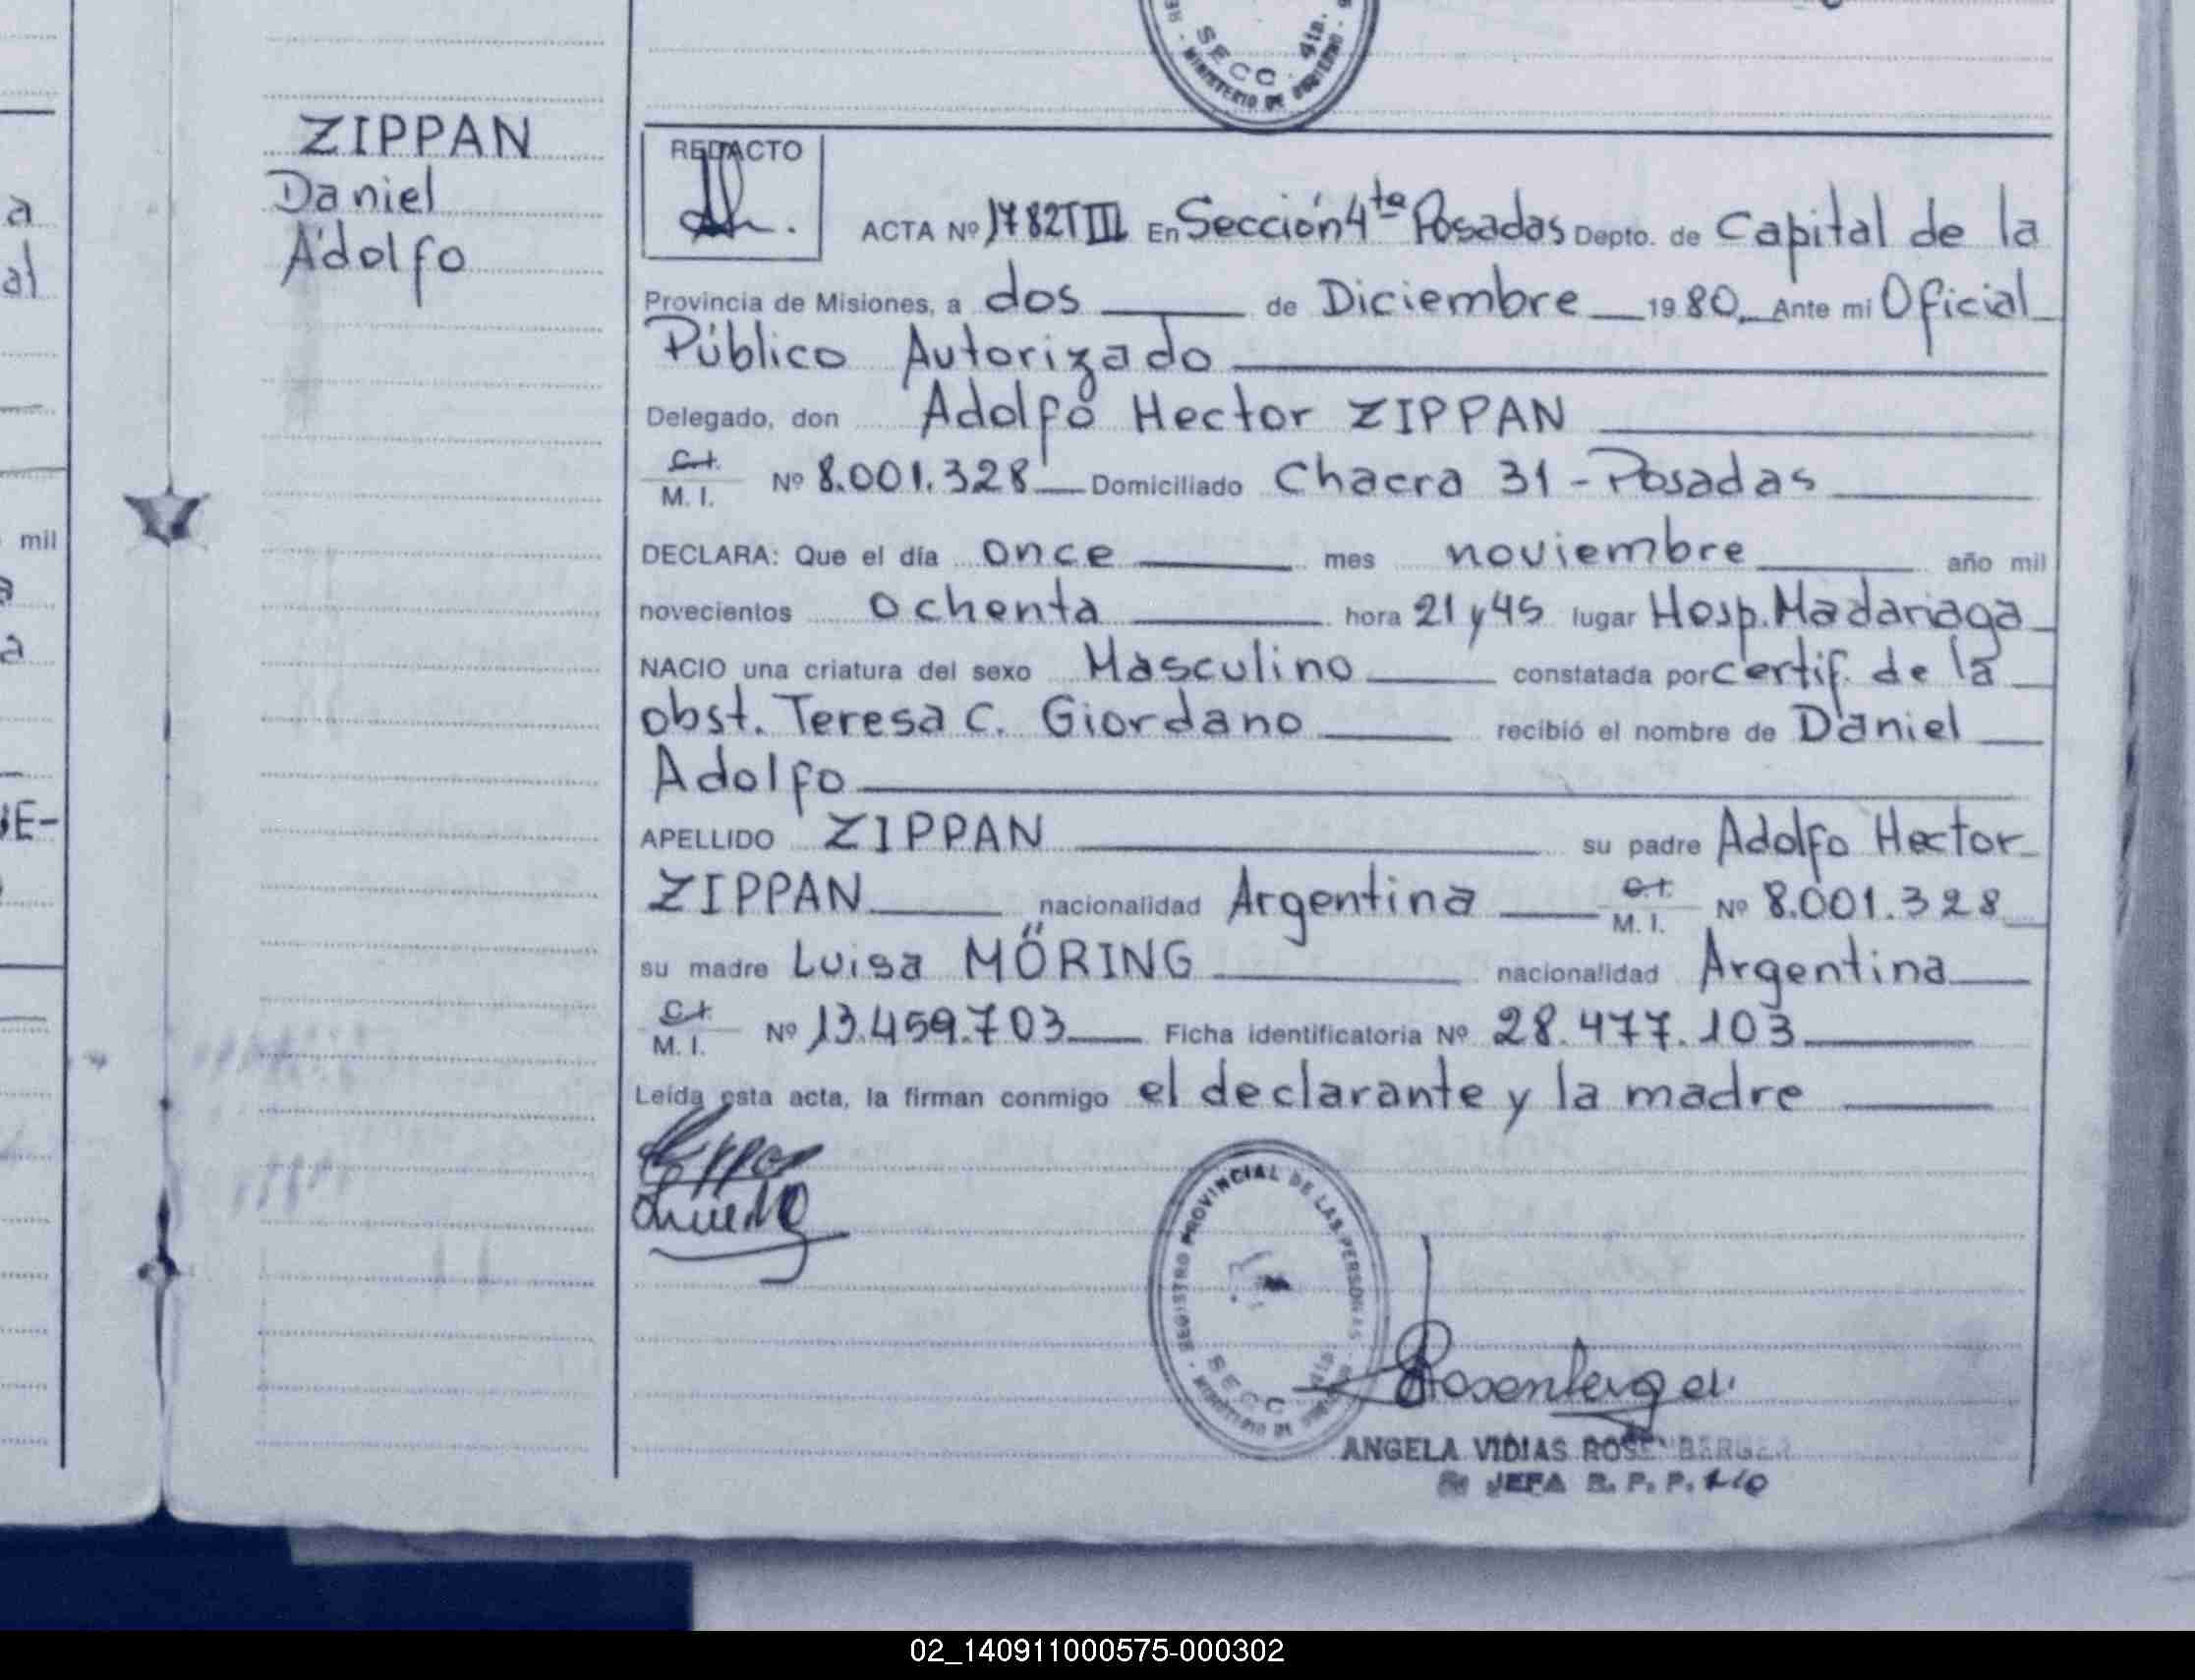 SECC. 4ta.
MINISTERIO DE GOBIERNO
a
al
mil
a
a
NE-
ZIPPAN
Daniel
Adolfo
REDACTO
ACTA Nº 1782TIII En Sección 4ta Posadas Depto. de Capital de la
Provincia de Misiones, a dos de Diciembre 1980 Ante mi Oficial
Público Autorizado
Delegado, don Adolfo Hector ZIPPAN
C.I.
M. I. Nº 8.001.328 Domiciliado Chacra 31 - Posadas
DECLARA: Que el día once mes noviembre año mil
novecientos ochenta hora 21 y 45 lugar Hosp. Madariaga
NACIO una criatura del sexo Masculino constatada por certif. de la
obst. Teresa C. Giordano recibió el nombre de Daniel
Adolfo
APELLIDO ZIPPAN su padre Adolfo Hector
ZIPPAN nacionalidad Argentina C.I. M. I. Nº 8.001.328
su madre Luisa MÖRING nacionalidad Argentina
C.I.
M. I. Nº 13.459.703 Ficha identificatoria Nº 28.477.103
Leída esta acta, la firman conmigo el declarante y la madre
REGISTRO PROVINCIAL DE LAS PERSONAS
SECC. 4ta.
MINISTERIO DE GOBIERNO
Rosenberger
ANGELA VIDIAS ROSENBERGER
JEFA R. P. P.
02_140911000575-000302